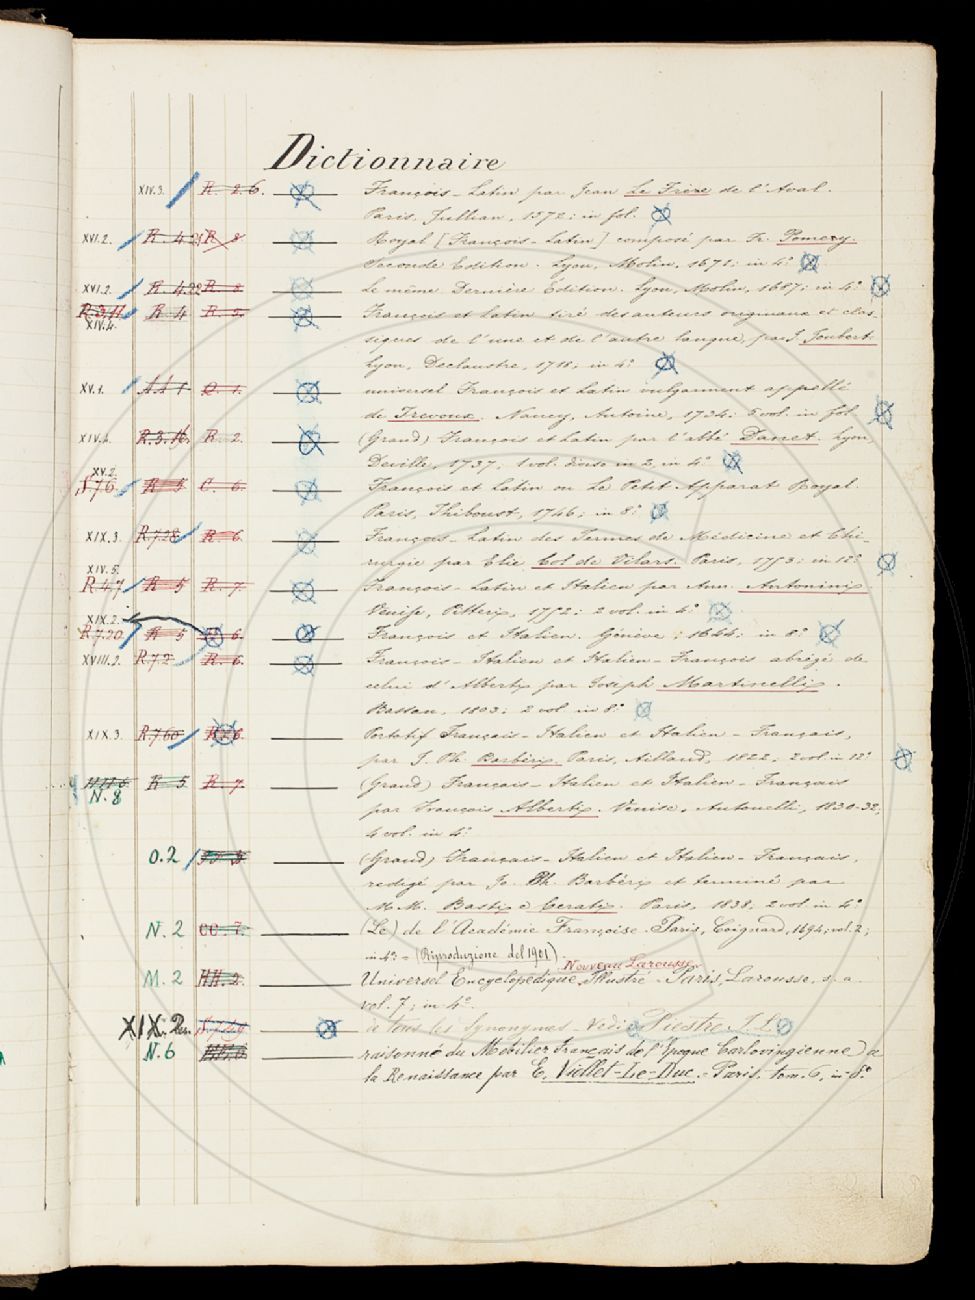 Dictionnaire
XIV.3. R. 2.6. François - Latin par Jean Le Frère de l'Aval.
Paris, Jullian, 1572; in fol.
XVI.2. R. 4. R 8 Royal [François - Latin] composé par Fr. Pomey.
Seconde Edition. Lyon, Molin, 1671; in 4º
XVI.2. R. 4.22 R. 8 Le même Dernière Edition. Lyon, Molin, 1687; in 4º
R.3.11 XIV.4. R 4 R. 5. François et Latin tiré des auteurs originaux et clas-
siques de l'une et de l'autre langue, par J Joubert.
Lyon, Declaustre, 1718; in 4º
XV.1. universel François et Latin vulgairement appellé
de Trevoux. Nancy, Antoine, 1734; 5 vol. in fol.
XIV.4. R.3.16. R. 2. (Grand) François et Latin par l'Abbé Danet. Lyon,
Deville, 1737, 1 vol. diviso in 2, in 4º
XV.2. S 7 6 R 5 C. 6. François et Latin ou Le Petit Apparat Royal
Paris, Thiboust, 1746; in 8º
XIX.3. R.7.28 R. 6. François - Latin des Termes de Médicine et Chi-
rurgie par Elie Col de Vilars. Paris, 1753; in 12º
XIV.5. R.4.7 R 5 R. 7. François - Latin et Italien par Ann. Antonini
Venise, Pitteri, 1752; 2 vol. in 4º
XIX.2. R 7.20. R 5 6. François et Italien. Génève; 1644; in 8º
XVIII.2. R.7.2 R. 6. François - Italien et Italien - François abrégé de
celui d'Alberti par Joseph Martinelli.
Bassan, 1803; 2 vol in 8º
XIX.3. R.7.60 Portatif Français - Italien et Italien - Français,
par J. Ph. Barbéri. Paris, Aillaud, 1822; 2 vol in 12º
N. 8 R 5 R. 7. (Grand) Français - Italien et Italien - Français
par François Alberti. Venise, Antonelli, 1830-32;
4 vol. in 4º
O.2 (Grand) Français - Italien et Italien - Français,
redigé par Jo. Ph. Barbéri et terminé par
M.M. Basti e Cerati. Paris, 1838, 2 vol. in 4º
N. 2 CC. 7. (Le) de l'Académie Française. Paris, Coignard, 1694; vol. 2;
in 4º = (Riproduzione del 1901)
Nouveau Larousse
M. 2 HH. 2. Universel Encyclopédique Illustré - Paris, Larousse, s. a.
vol. 7; in 4º
XIX. 2. à tous les Synonymes - Vedi Piestre J. L.
N. 6 raisonné du Mobilier Français de l'Epoque Carlovingienne a
la Renaissance par E. Viollet-Le-Duc. - Paris. tom. 6, in-8º